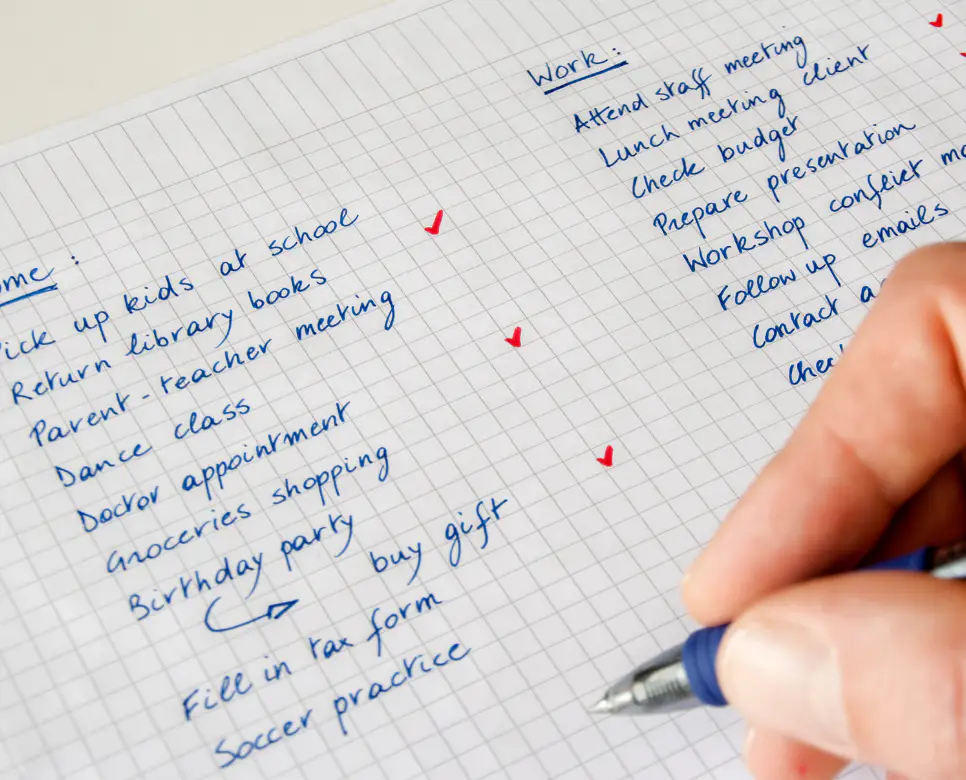 ome :
ick up kids at school
Return library books
Parent-teacher meeting
Dance class
Doctor appointment
Groceries shopping
Birthday party
buy gift
Fill in tax form
Soccer practice
Work :
Attend staff meeting
Lunch meeting client
Check budget
Prepare presentation
Workshop conflict
Follow up emails
Contact